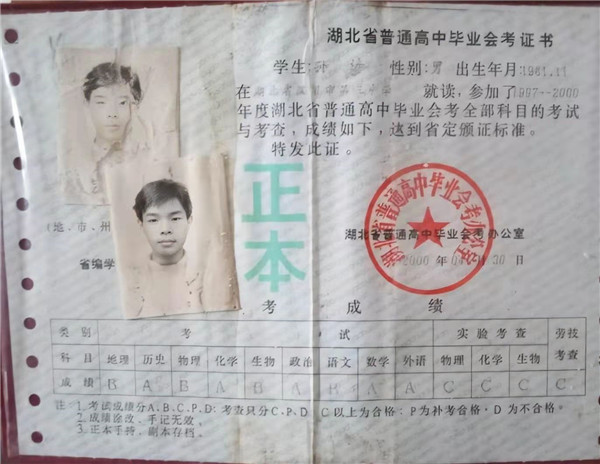 湖北省普通高中毕业会考证书
学生 性别:男 出生年月:1981.11
在 就读,参加了1997--2000
年度湖北省普通高中毕业会考全部科目的考试
与考查,成绩如下,达到省定颁证标准。
特发此证。
正本
(地、市、州
湖北省普通高中毕业会考办公室
湖北省普通高中毕业会考办公室
省编学
2000年0 月30日
考 成 绩
类别 考 试 实验考查 劳技
科目 地理 历史 物理 化学 生物 政治 语文 数学 外语 物理 化学 生物 考查
成绩 B A B A B A A A C C C C
注:1.考试成绩分A.B.C.P.D:考查只分C.P.D C以上为合格:P为补考合格·D为不合格。
2.成绩涂改、手记无效,
3.正本手持、副本存档。